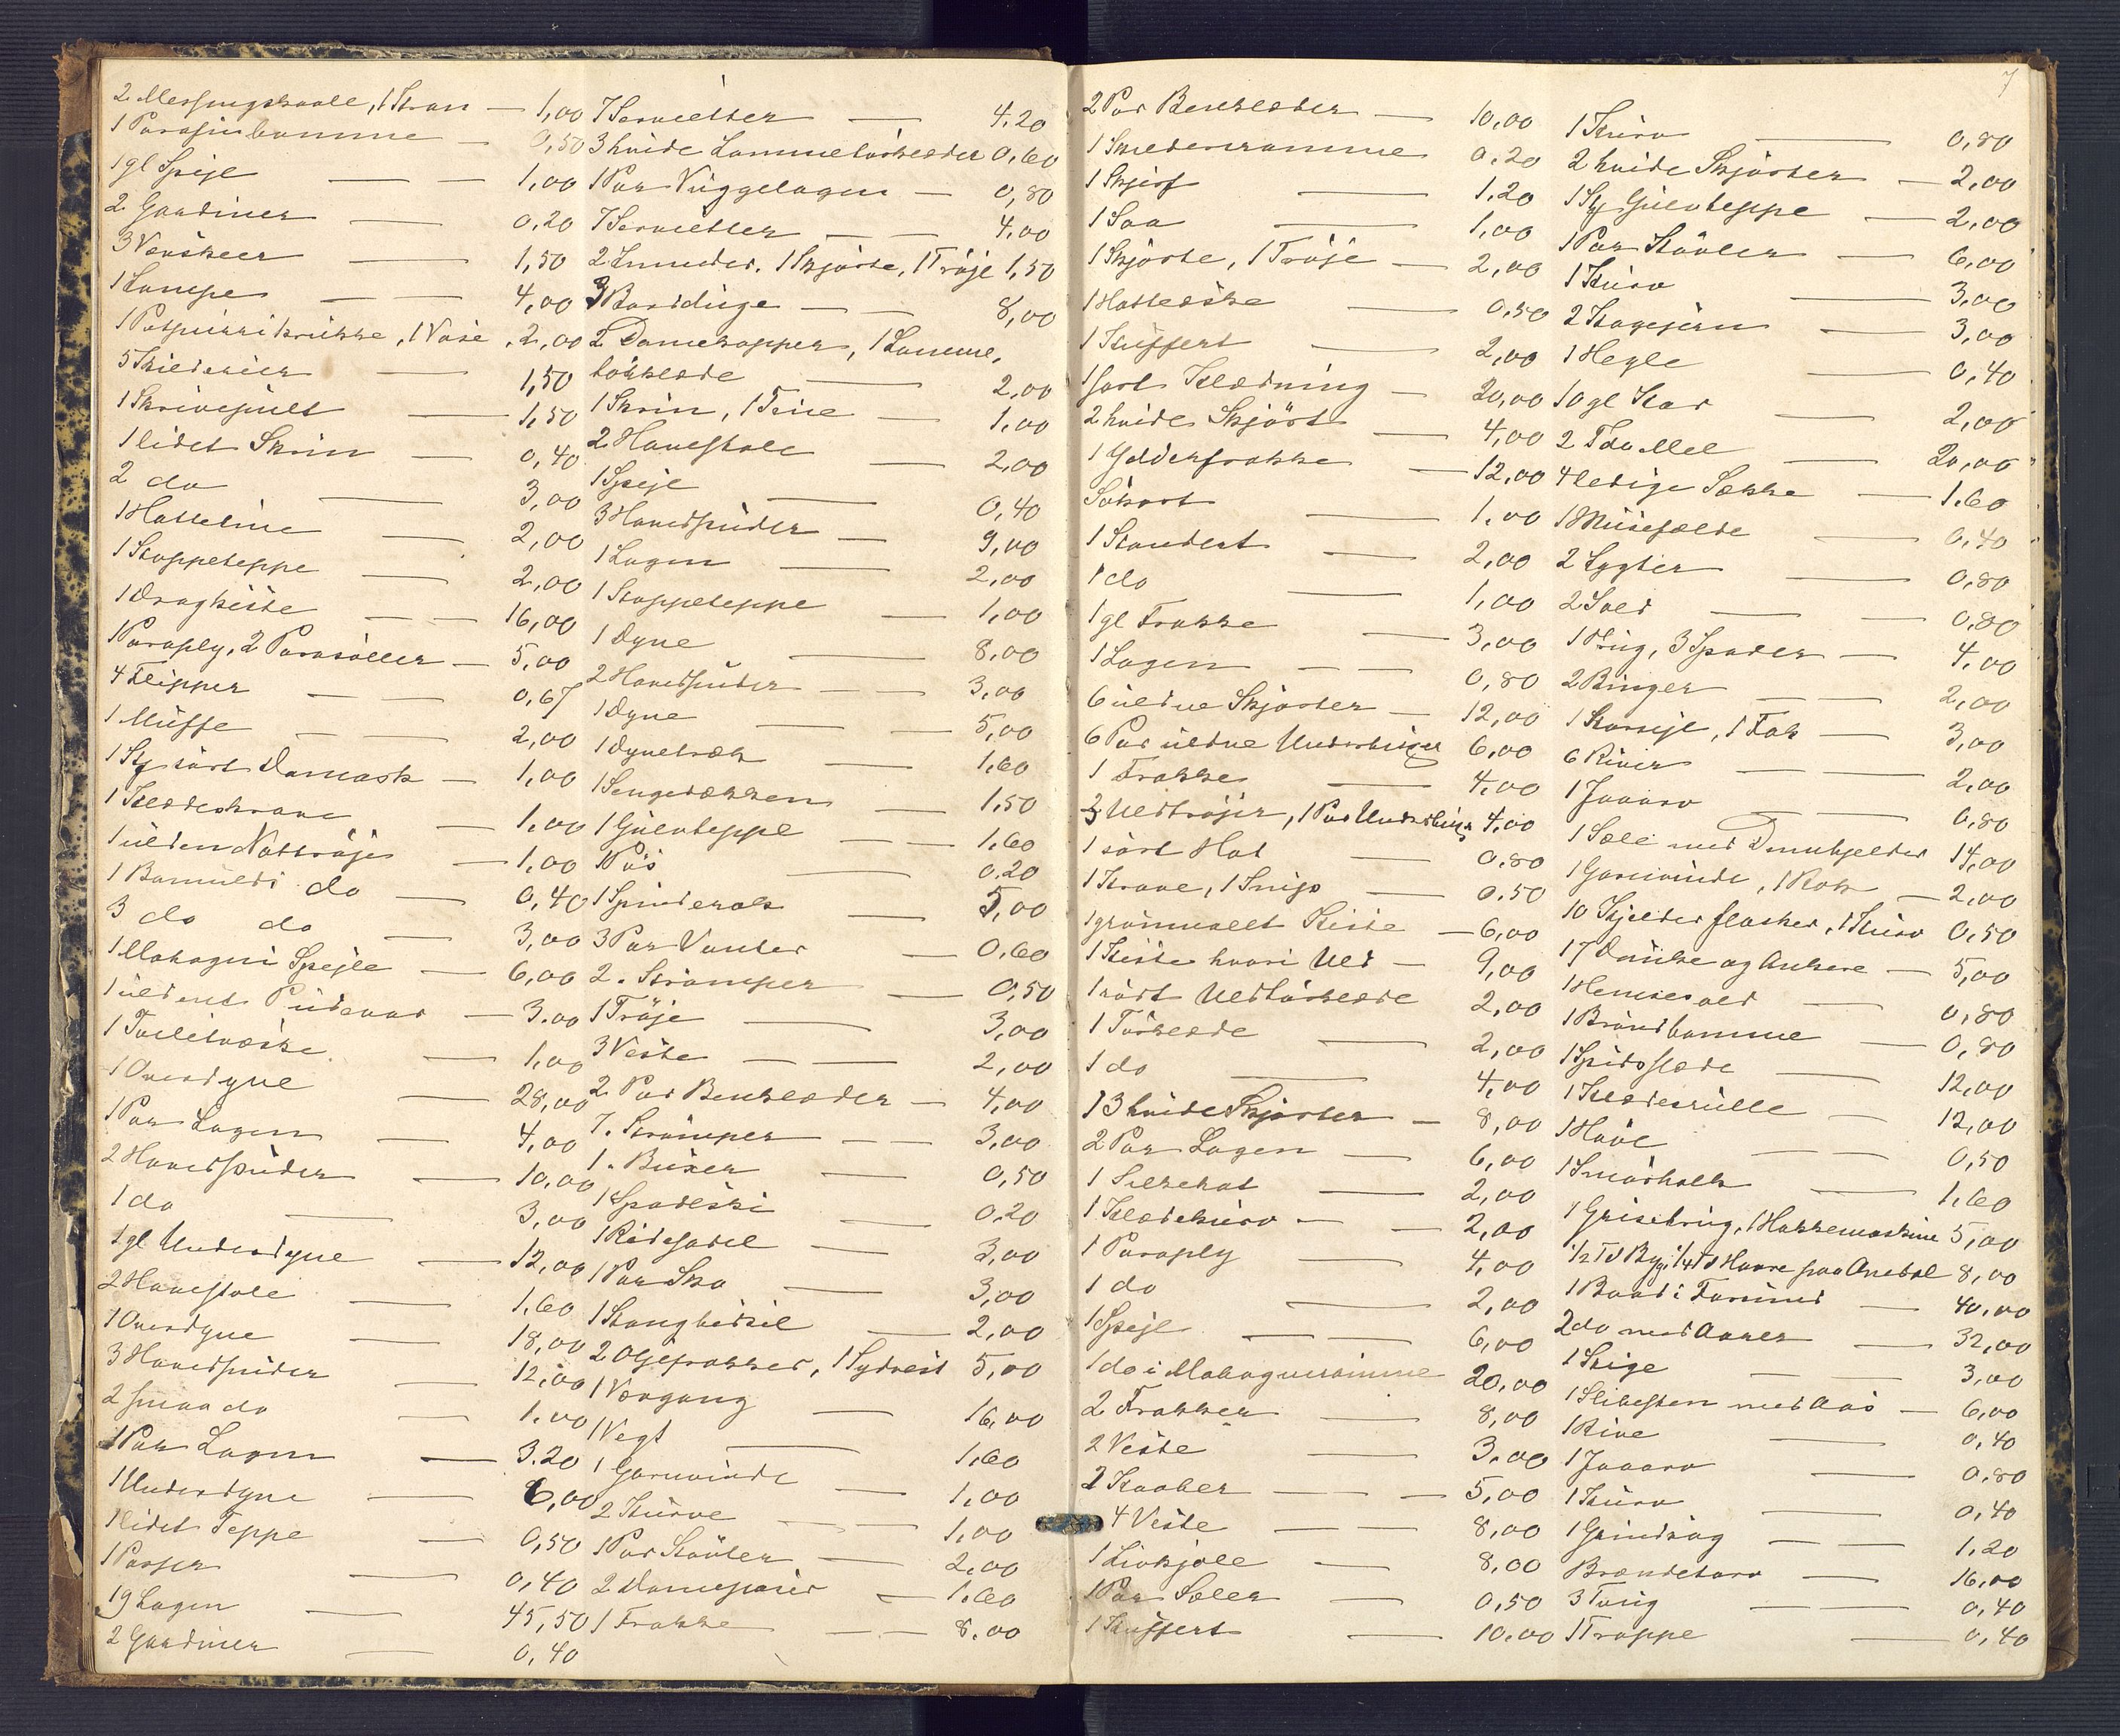 2 Messingskaale, 1 Kran — 1,00
1 Parafinkamme — 0,50
1 gl Speje — 1,00
2 Gardiner — 0,20
3 — 1,50
1 Lampe — 4,00
1 Potpurrikrukke, 1 Vase, 2,00
5 Skilderier — 1,50
1 Skrivepult — 1,50
1 lidet Skrin — 0,40
2 do — 3,00
1 Hatteline — 2,00
1 Stoppeteppe — 2,00
1 Dragkiste — 16,00
1 Paraply, 2 Parasoller — 5,00
4 Flipper — 0,67
1 Muffe — 2,00
1 Sty sort Damask — 1,00
1 Klædeskrane — 1,00
1 ulden Nattrøje — 1,00
1 Bomulds do — 0,40
3 do do — 3,00
1 Mahogni Spejle — 6,00
1 uldent Pudevar — 3.00
1 Toiletvæske — 1,00
1 Overdyne — 28,00
1 Par Lagen — 4,00
2 Hovedpuder — 10,00
1 do — 3,00
1 gl Underdyne — 12,00
2 Havestole — 1,60
1 Overdyne — 18,00
3 Hovedpuder — 12,00
2 smaa do — 1.00
1 Par Lagen — 3.20
1 Underdyne — 6,00
1 lidet Teppe — 0,50
1 Passer — 0,40
19 Lagen — 45,50
2 Gardiner — 0,40
7 Servietter — 4.20
3 hvide Lommetørklæder 0,60
1 Par Vuggelagen — 0,80
7 Servietter — 4.00
2 Snuder. 1 Skjørte, 1 Trøje 1,50
3 Bordduge — 8,00
2 Damekapper, 1 Lomme,
tørklæde — 2,00
1 Skrin, 1 Tine — 1,00
2 Havestole — 2,00
1 Speje — 0,40
3 Hovedpuder — 9,00
1 Lagen — 2,00
1 Stoppeteppe — 1,00
1 Dyne — 8,00
2 Hovedpuder — 3,00
1 Dyne — 5,00
1 Dynetræk — 1,60
1 Sengedækken — 1,50
1 Gulvteppe — 1.60
1 Pus 0.20
1 Spinderok — 5,00
3 Par Vanter — 0.60
2 . Strømper — 0,50
1 Trøje — 3,00
3 Veste — 2,00
2 Par Benklæder — 4,00
7. Strømper — 3,00
1 . Buxer — 0,50
1 Spadeski — 0.20
1 Ridesadel — 3,00
1 Par Sko — 3,00
1 Stangbidsel — 2,00
2 Oljefrakker, 1 Sydvest 5,00
1 Vævgang — 16,00
1 Vegt — 1,60
1 Garnvinde — 1,00
2 Kurve — 1,00
1 Par Støvler — 2,00
2 — 1.60
1 Frakke — 8.00
7
2 Par Benklæder — 10,00
1 Skilderramme 0,20
1 Skjerf — 1,20
1 Saa — 1,00
1 Skjørte, 1 Trøje — 2,00
1 Hatteæske — 0,50
1 Kuffert — 2,00
1 sort Klædning — 20,00
2 hvide Skjørt — 4,00
1 Yderfrakke — 12,00
Søkort — 1,00
1 Standert — 2,00
1 do — 1,00
1 gl Frakke — 3,00
1 Lagen — 0,80
6 uldne Skjorter — 12,00
6 Par uldne Underbuxer 6,00
1 Frakke — 4,00
3 Uldtrøjer, 1 Par Underbux 4,00
1 sort Hat — 0,80
1 Krave, 1 Snips — 0.50
1 grønmalt Kiste — 6,00
1 Kiste hvori Uld — 9,00
1 rødt Uldtørklæde 2,00
1 Tørklæde — 2,00
1 do — 4,00
13 hvide Skjorter — 8,00
2 Par Lagen — 6,00
1 Silkehat — 2,00
1 Klædekurv — 2,00
1 Paraply — 4,00
1 do — 2,00
1 Speje — 6,00
1 do i Mahogniramme 20,00
2 Frakker — 8,00
2 Veste — 3,00
2 Kaaber — 5,00
4 Veste — 8,00
1 Livkjole — 8,00
1 Par Seler — 0,50
1 Kuffert — 10.00
1 Kurv — 0,80
2 hvide Skjorter — 2,00
1 Sty Gulvteppe — 2,00
1 Par Støvler — 6,00
1 Kurv — 3,00
2 Kagejern — 3,00
1 Hegle — 0,40
10 gl Kar — 2,00
2 Tdr Mel — 20,00
4 ledige Sække — 1.60
1 Musefælde — 0,40
2 Lygter — 0,80
2 Sold — 0,80
1 Trug, 3 Spader — 4,00
2 Binger — 2,00
1 Karreje, 1 Fok — 3,00
6 River — 2,00
1 Jaaarv — 0,80
1 Sæle med Drumbjelder 14,00
1 Garnvinde, 1 Rok — 2,00
10 Kjelderflasker, 1 Kurv 0,50
17 Dunke og Ankere — 5,00
1 — 0,80
1 Brændkamme — 0,80
1 Spidsslæde — 12,00
1 Klæderulle — 12,00
1 Høvl — 0,50
1 Smørholk — 1,60
1 Grisetrug, 1 Hakkemaskine 5,00
1/2 Td Byg, 1/4 Td Havre paa Anebøl 8,00
1 Baad i Farsund — 40,00
2 do med Aarer — 32,00
1 Stige — 3,00
1 Slibesten med Aas — 6,00
1 Rive — 0,40
1 Jaaarv — 0,80
1 Kurv — 0,40
1 Grindsag — 1.20
Brændetorv — 16,00
3 Tvug — 0,40
1 Trappe — 0,40